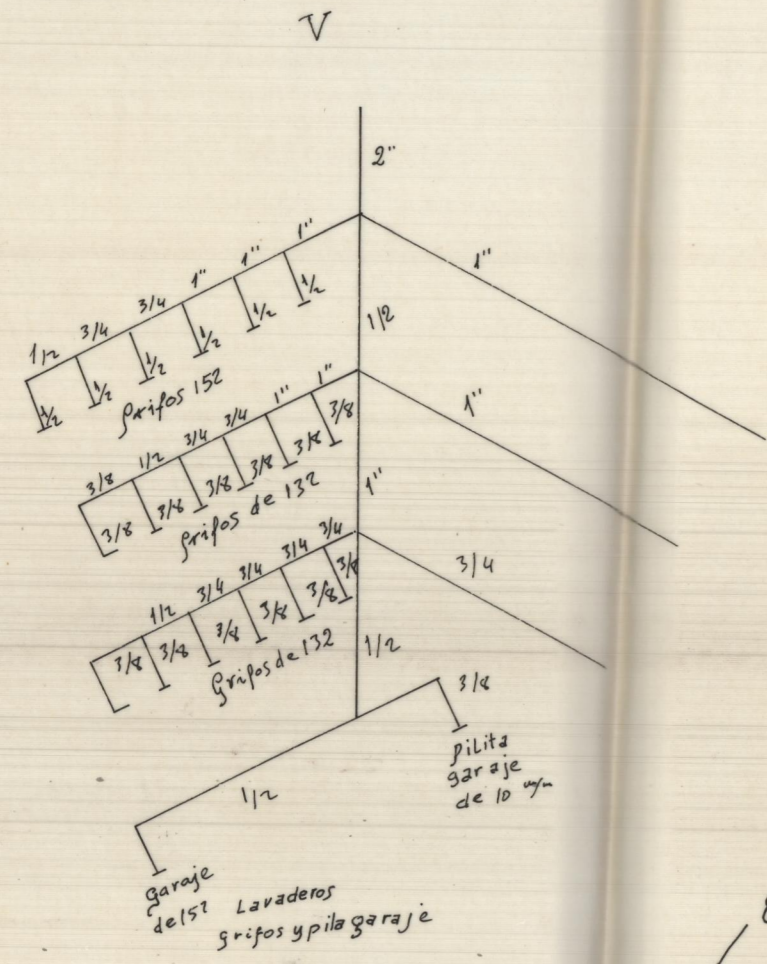 V
2"
1"
1"
1"
1"
3/4
3/4
1/2
1/2
1/2
1/2
1/2
1/2
1/2
Grifos 152
1/2
1"
1"
1"
3/4
3/4
1/2
3/8
3/8
3/8
3/8
3/8
3/8
3/8
Grifos de 132
1"
1"
3/4
3/4
3/4
3/4
1/2
3/8
3/8
3/8
3/8
3/8
3/8
Grifos de 132
3/4
1/2
3/8
pilita
garaje
de 10 m/m
1/2
garaje
de 152
Lavaderos
grifos y pila garaje